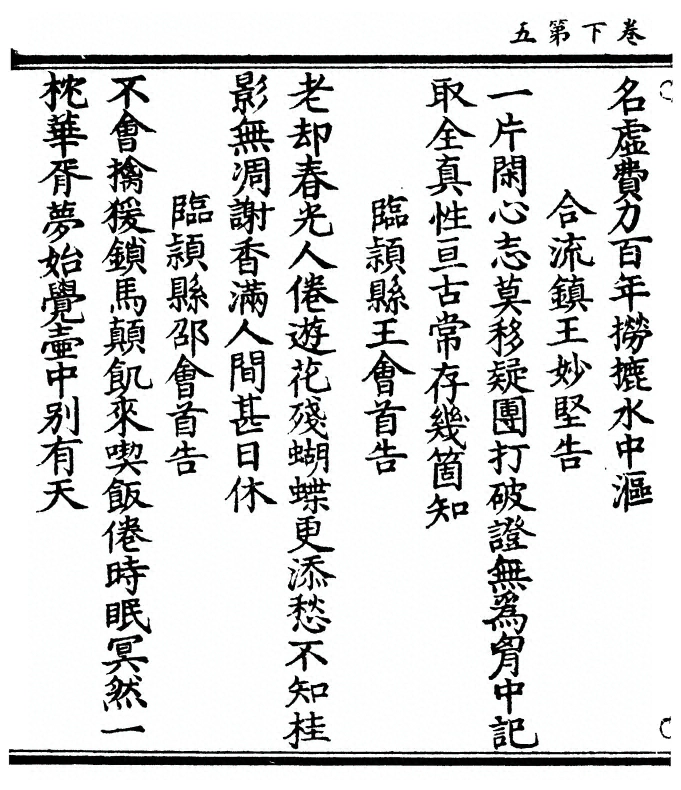 卷下第五
名虛費力百年撈摝水中漚
合流鎮王妙堅告
一片閑心志莫移疑團打破證無爲胷中記
取全真性亘古常存幾箇知
臨潁縣王會首告
老却春光人倦遊花殘蝴蝶更添愁不知桂
影無凋謝香滿人間甚日休
臨潁縣邵會首告
不會擒猨鎖馬顛飢來喫飯倦時眠冥然一
枕華胥夢始覺壷中別有天